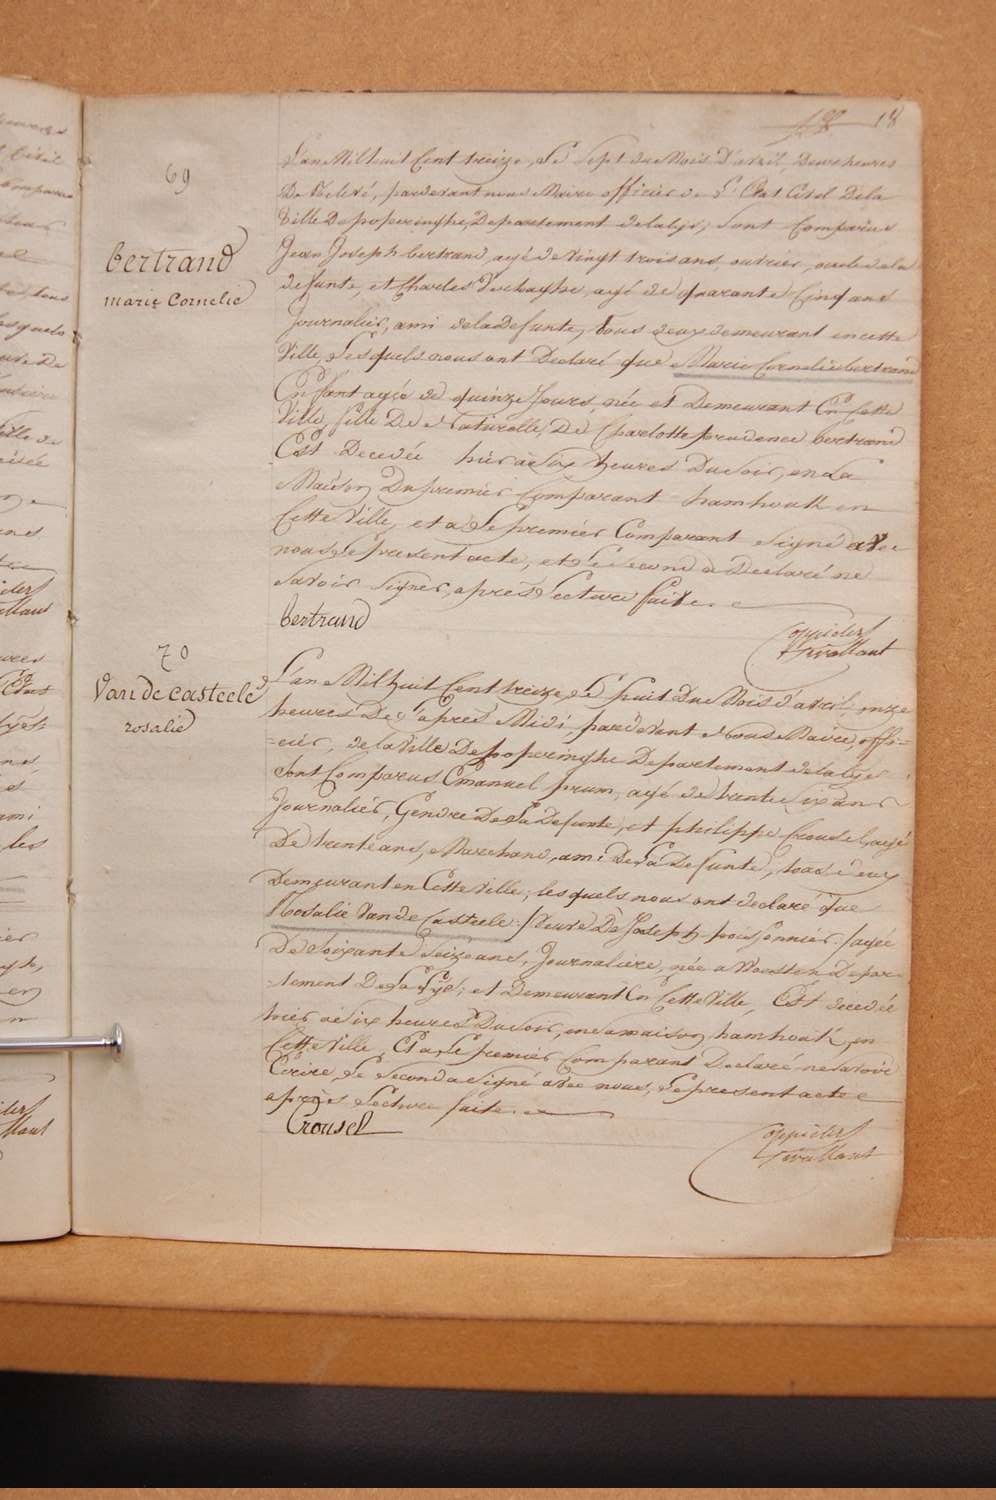 18
69
bertrand
marie Cornelie
L'an Mil huit Cent treize, Le Sept du Mois D'avril, Deux heures
De Relevé, pardevant nous Maire officier de L'Etat Civil Dela
Ville De poperinghe, Departement delalys, Sont Comparus
Jean Joseph bertrand, agé de Vingt trois ans, ouvrier, oncle dela
defunte, et Charles agé de quarante Cinq ans
Journalier, ami dela Defunte, tous deux demeurant en cette
Ville, Lesquels nous ont Declaré que Marie Cornelie bertrand
Enfant agée de quinze Jours, née et Demeurant En Cette
Ville, fille De Naturelle, De Charlotte prudence bertrand
Est Decedée hier à Six heures Du Soir, en La
Maison Du premier Comparant hamhoult en
Cette Ville, et a Le premier Comparant Signé avec
nous Le present acte, et Le Second a Declaré ne
Savoir Signer, après Lecture faite.
bertrand
70
Van de Casteele
rosalie
L'an Mil huit Cent treize, Le huit du Mois d'avril, onze
heures De L'après Midi, pardevant Nous Maire, offi=
=cier, de la Ville De poperinghe Departement delalys
Sont Comparus Emanuel prum, agé de trente Six ans
Journalier, Gendre De La Defunte, et philippe Crousel, agé
De trente ans, Marchand, ami De La Defunte, tous deux
Demeurant en Cette Ville; lesquels nous ont declaré que
Rosalie Van de Casteele, Veuve De Joseph poissonnier agée
De Soixante Seize ans, Journaliere, née a Woesten Depar
-tement De La Lys; et Demeurant En Cette Ville, Est decedée
hier à Six heures Du Soir, en Sa maison, hamhoult, en
Cette Ville, Et a Le premier Comparant Declaré ne Savoir
Ecrire, Le Second a Signé avec nous, Le present acte
après Lecture faite.
Crousel